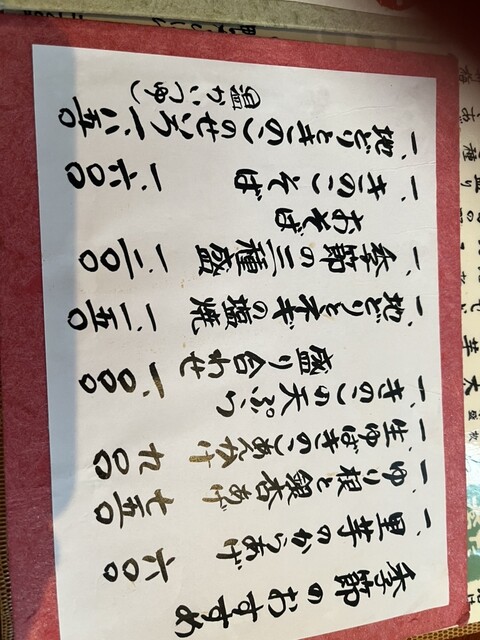 季節のおすすめ
一、里芋のからあげ 六〇〇
一、ゆり根と銀杏あげ 七五〇
一、生ゆばきのこあんかけ 九〇〇
一、きのこの天ぷら
盛り合わせ 一、〇〇〇
一、地どりとネギの塩焼 一、一五〇
一、季節の三種盛 一、二〇〇
おそば
一、きのこそば 一、六〇〇
一、地どりときのこのせいろ 一、八五〇
(温かいつゆ)